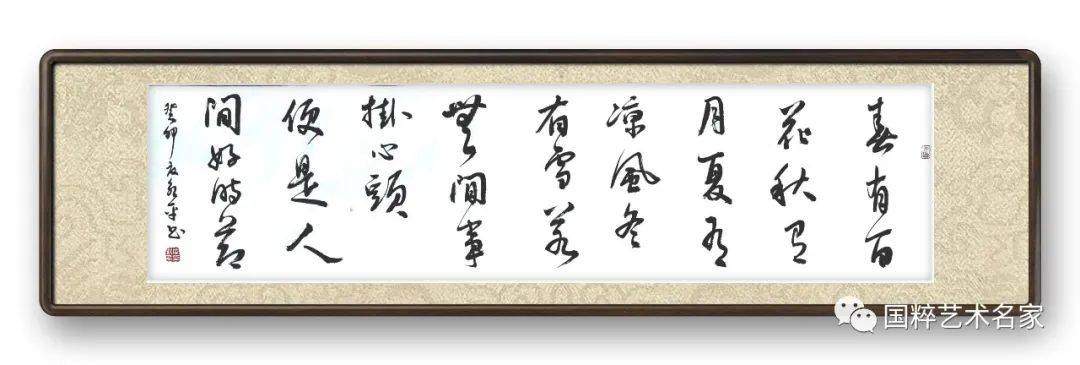 春有百
花秋有
月夏有
凉風冬
有雪若
無閒事
掛心頭
便是人
間好時節
癸卯 平书
国粹艺术名家